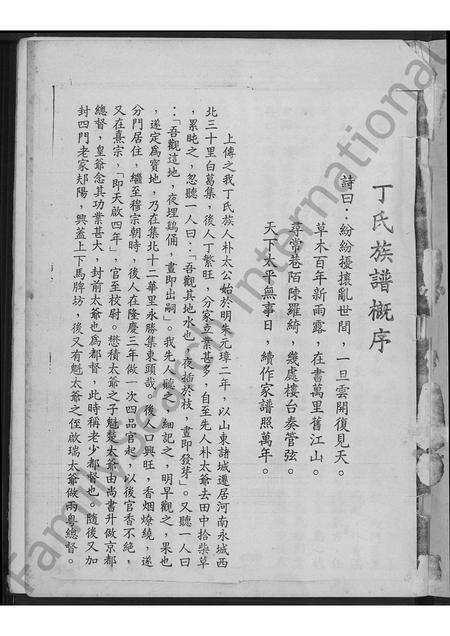 丁氏族譜概序
詩曰：紛紛擾攘亂世間，一旦雲開復見天。
草木百年新雨露，在書萬里舊江山。
尋常巷陌陳羅綺，幾處樓台奏管弦。
天下太平無事日，續作家譜照萬年。
上傳之我丁氏族人朴太公始於明朱元璋二年，以山東諸城遷居河南永城西
北三十里白葛集，後人丁繁旺，分家立業甚多，自至先人朴太爺去田中拾柴草
，累盹之，忽聽一人曰：「吾觀其地水也，夜插於枝，晝即發芽」。又聽一人曰
：「吾觀這地，夜埋鷄俑，晝即出嗣」。我先人聽之，細記之，明早觀之，果也
，遂定為寶地，乃在集北十二華里永勝集東頭哉。後人口興旺，香烟燎繞，遂
分門居住，繼至穆宗朝時，後人在隆慶三年做一次四品官起，以後官香不絕，
又在熹宗，「即天啟四年」，官至校尉。懋積太爺之子魁楚太爺由尚書升做京都
總督，皇爺念其功業甚大，封前太爺也為都督，此時稱老少都督也。隨後又加
封四門老家郟陽，興蓋上下馬牌坊，後又有魁太爺之侄啟瑞太爺做兩粵總督。
FamilySearch International